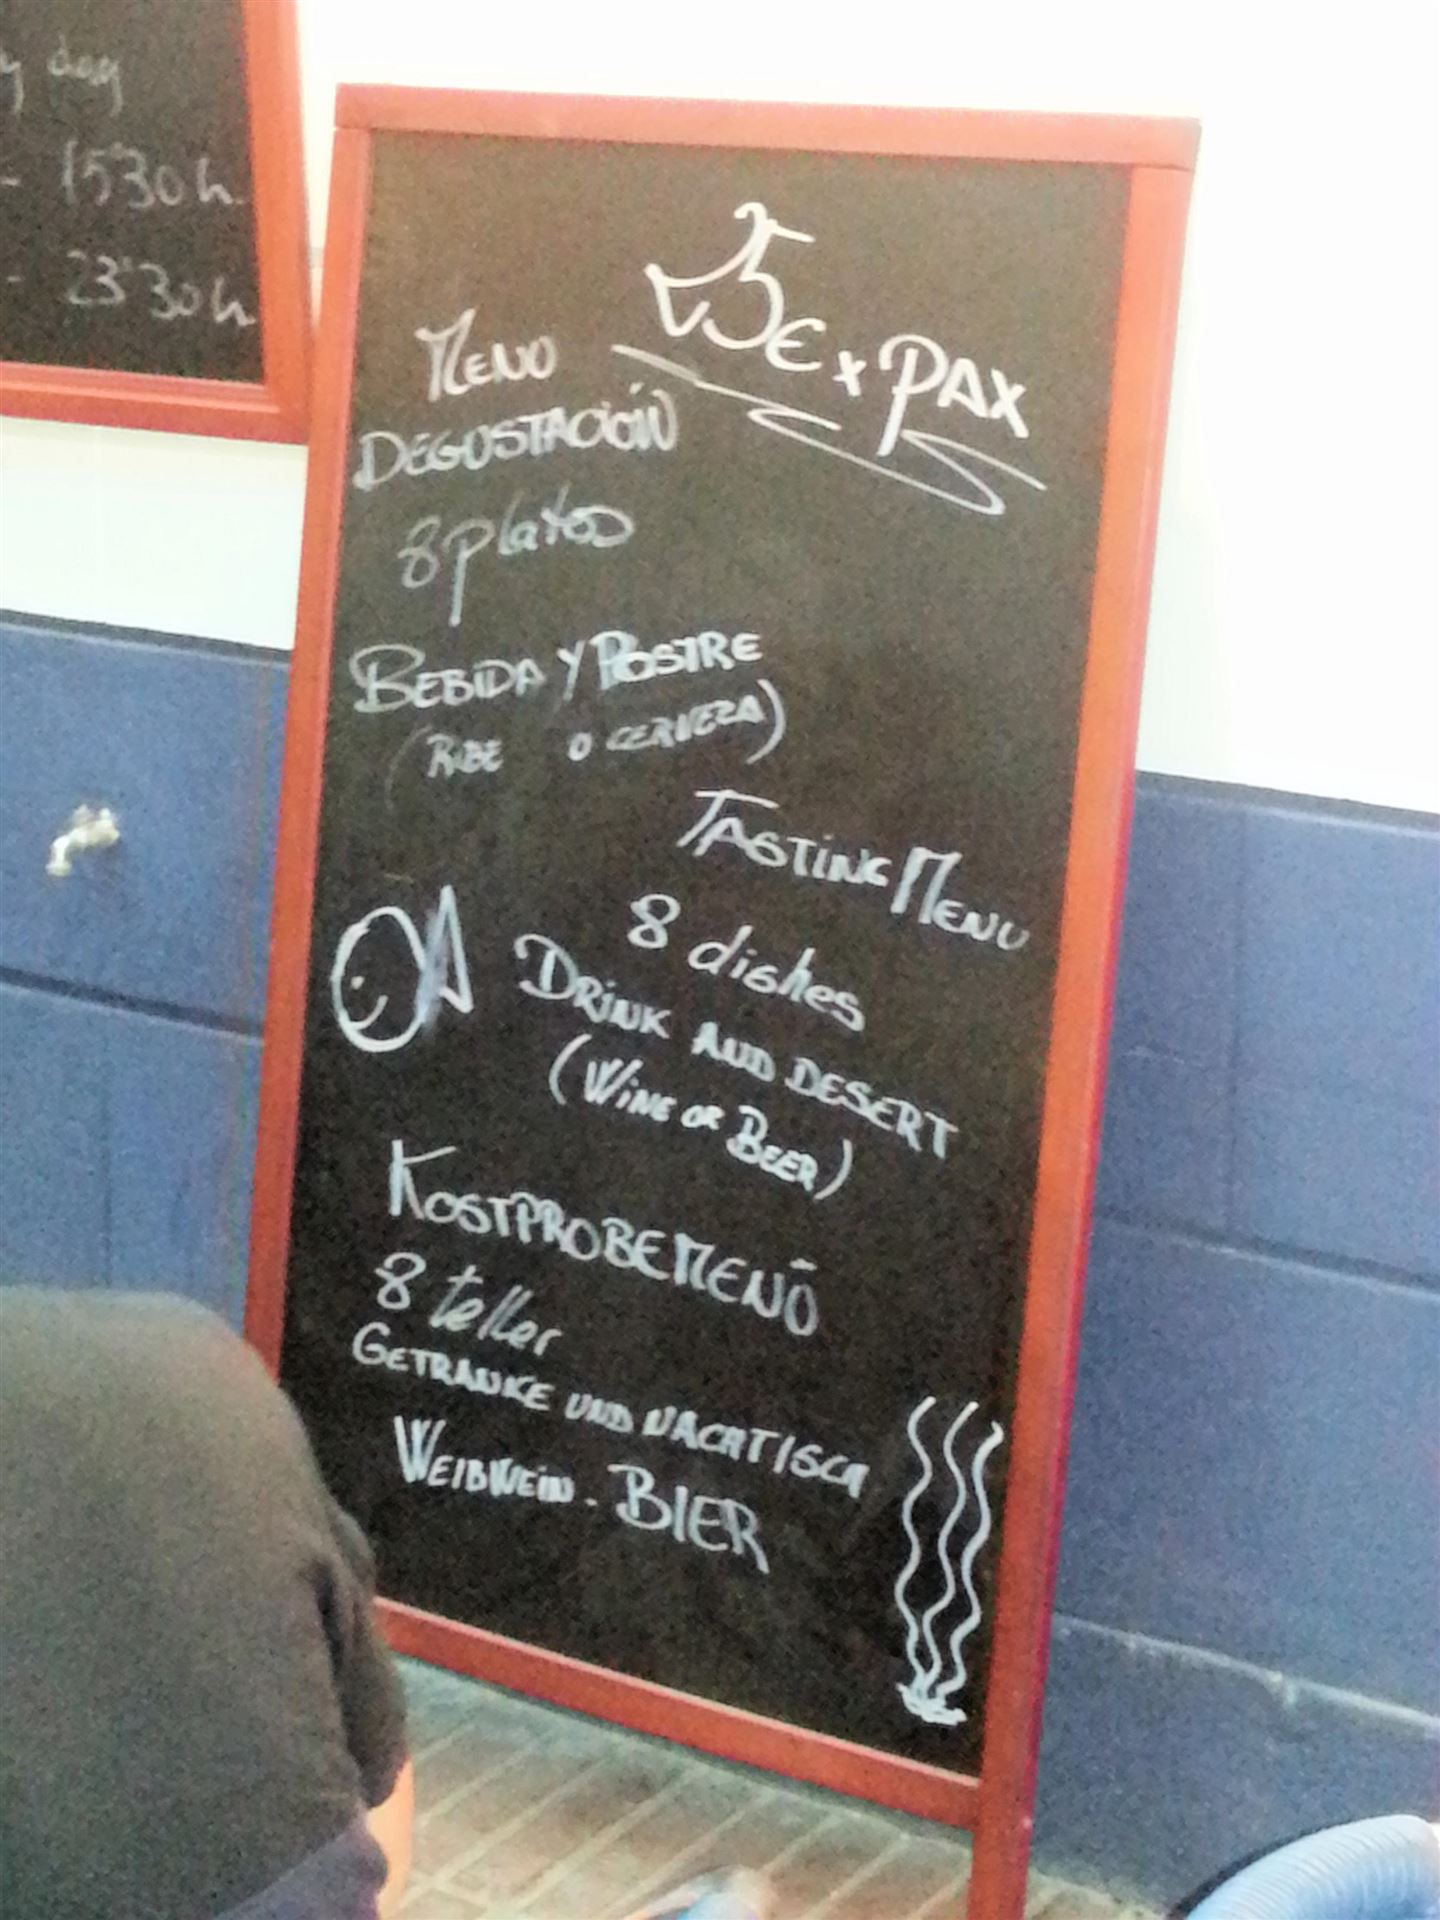 y day
- 15'30 h.
- 23'30 h
25€ x PAX
MENU
DEGUSTACIÓN
8 platos
BEBIDA Y POSTRE
(RIBE O CERVEZA)
TASTING MENU
8 dishes
DRINK AND DESERT
(WINE OR BEER)
KOSTPROBEMENÜ
8 teller
GETRANKE UND NACHTISCH
WEIBWEIN - BIER